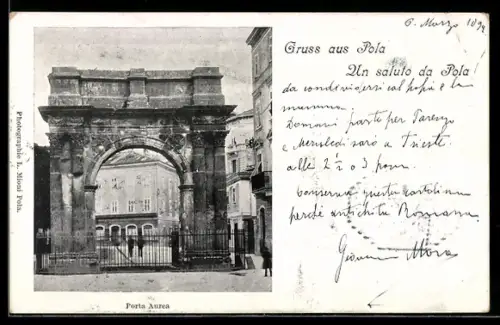 6 Marzo 1899
Gruss aus Pola
Un saluto da Pola!
da condividersi col papa e la
mamma.
Domani parto per Parenzo
e Mercoledì sarò a Trieste
alle 2 ½ o 3 pom.
Conserva questa cartolina
perchè antichità Romana
Giovanni Mora
Photographie L. Mioni Pola.
Porta Aurea